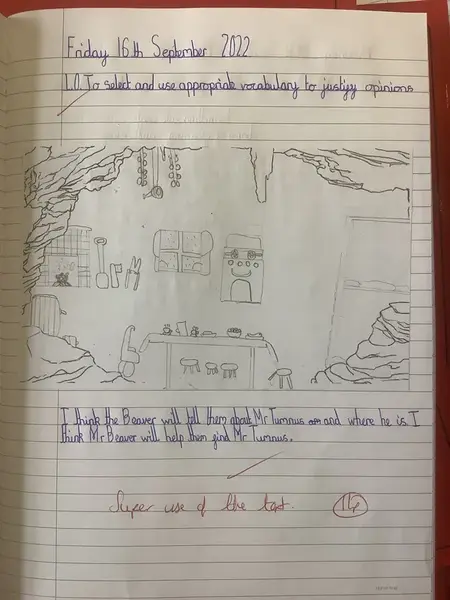 Friday 16th September 2022
L.O. To select and use appropriate vocabulary to justify opinions
I think the Beaver will tell them about Mr Tumnus and where he is. I
think Mr Beaver will help them find Mr Tumnus.
Super use of the text.